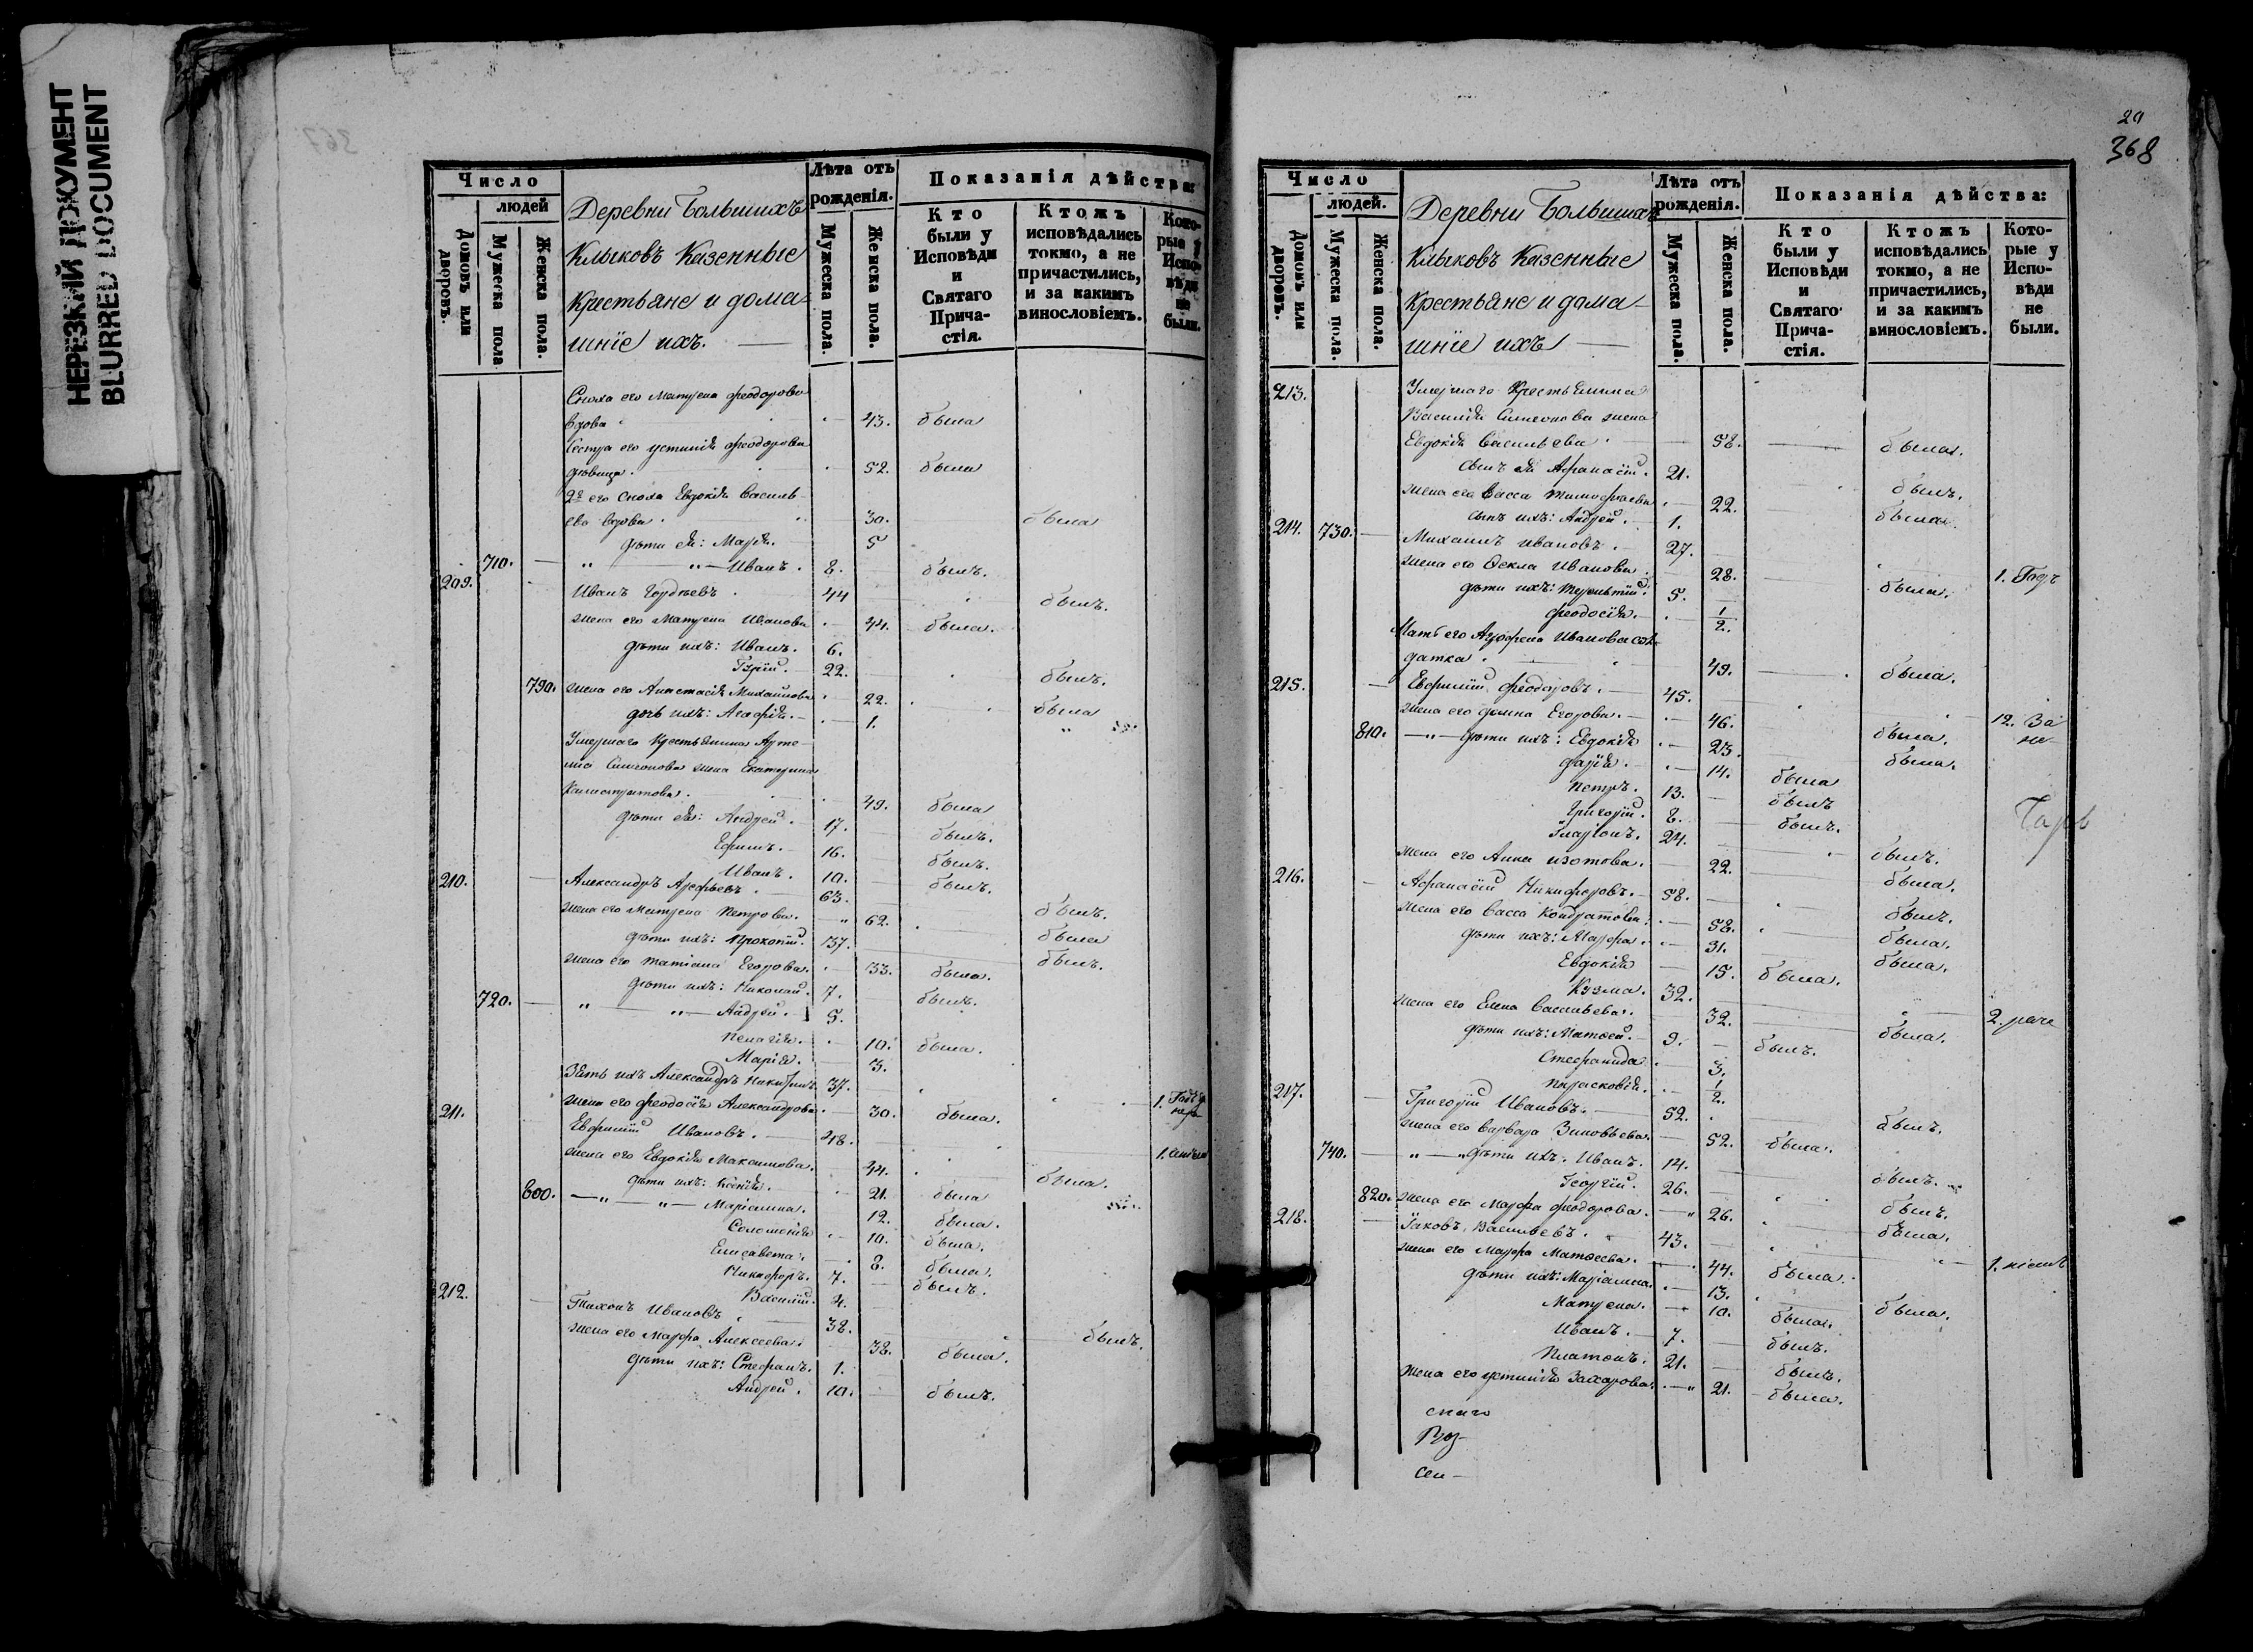 НЕРЕЗКИЙ ДОКУМЕНТ
BLURRED DOCUMENT
Число
людей
Домовъ или дворовъ.
Мужеска пола
Женска пола.
Деревни Большихъ
Клыковъ Казенные
Крестьяне и дома-
шніе ихъ.
Лѣта отъ рожденія.
Мужеска пола.
Женска пола.
Показанія дѣйства:
Кто были у Исповѣди и Святаго Прича-стія.
Ктожъ исповѣдались токмо, а не причастились, и за какимъ винословіемъ.
Кото-рые у Испо-вѣди не были.
Сноха его Матрена Феодорова
вдова 43. была
Сестра его Устинія Феодорова
дѣвица. 52. была
2я его Сноха Евдокія Василь-
ева вдова. 30. была
дѣти ея: Марія. 5
710. Иванъ. 8. былъ.
209. Иванъ Гордѣевъ. 44 былъ.
жена его Матрена Иванова 44. была.
дѣти ихъ: Иванъ. 6.
Гурій. 22. былъ.
790. жена его Анастасія Михайлова 22. была
дочь ихъ: Агафія. 1.
Умершаго Крестьянина Арте-
мія Симеонова жена Екатерина
Калистратова. 49. была
дѣти ея: Андрей. 17. былъ.
Ефимъ. 16. былъ.
Иванъ. 10. былъ.
210. Александръ Арефьевъ. 63. былъ.
жена его Матрена Петрова. 62. была
дѣти ихъ: Прокопій. 37. былъ.
жена его Татіана Егорова. 33. была.
дѣти ихъ: Николай. 7. былъ.
720. Андрей. 5.
Пелагія. 10. была.
Марія. 3.
Зять ихъ Александръ 37. 1.
жена его Феодосія Александрова 30. была.
211. Евфимій Ивановъ. 48. 1.
жена его Евдокія Максимова. 44. была.
дѣти ихъ: Ксенія. 21. была
800. Маріамна. 12. была.
Соломонія 10. была.
Елисавета. 8. была.
Никифоръ. 7. былъ.
Василій. 4.
212. Тихонъ Ивановъ 38. былъ.
жена его Марфа Алексеева. 38. была.
дѣти ихъ: Стефанъ. 1.
Андрей. 10. былъ.
20
368
Число
людей.
Домовъ или дворовъ.
Мужеска пола.
Женска пола.
Деревни Большихъ
Клыковъ Казенные
Крестьяне и дома-
шніе ихъ
Лѣта отъ рожденія.
Мужеска пола.
Женска пола.
Показанія дѣйства:
Кто были у Исповѣди и Святаго Прича-стія.
Ктожъ исповѣдались токмо, а не причастились, и за какимъ винословіемъ.
Кото-рые у Испо-вѣди не были.
213. Умершаго Крестьянина
Василія Симеонова жена
Евдокія Васильева 58. была.
сынъ ея Афанасій. 21. былъ.
жена его Васса Тимофеева 22. была.
сынъ ихъ: Андрей. 1.
214. 730. Михаилъ Ивановъ. 27. 1. Годъ
жена его Фекла Иванова 28. была.
дѣти ихъ: Терентій. 5.
Феодосія. 1/2.
Мать его Агрфена Иванова сол-
датка. 49. была.
215. Евфимій Феодоровъ. 45. 12.
жена его Домна Егорова. 46. была.
810. дѣти ихъ: Евдокія 23. была.
Дарія. 14. была
Петръ. 13. былъ
Григорій. 8. былъ.
Іларіонъ. 24. былъ.
жена его Анна Изотова. 22. была.
216. Афанасій Никифоровъ. 58. былъ.
жена его Васса Кондратова. 58. была.
дѣти ихъ: Марфа. 31. была.
Евдокія 15. была.
Кузма. 32. 2.
жена его Елена Васильева. 32. была.
дѣти ихъ: Матѳей. 9. былъ.
Стефанида 3.
Парасковія. 1/2.
217. Григорій Ивановъ. 52. былъ.
жена его Варвара Зиновьева. 52. была.
740. дѣти ихъ. Иванъ. 14. былъ.
Георгій. 26. былъ.
820. жена его Марфа Феодорова. 26. была.
218. Іаковъ Васильевъ. 43. 1.
жена его Марфа Матѳеева. 44. была.
дѣти ихъ: Маріамна. 13. была.
Матрена. 10. была.
Иванъ. 7. былъ.
Платонъ. 21. былъ.
жена его Устинія Захарова. 21. была.